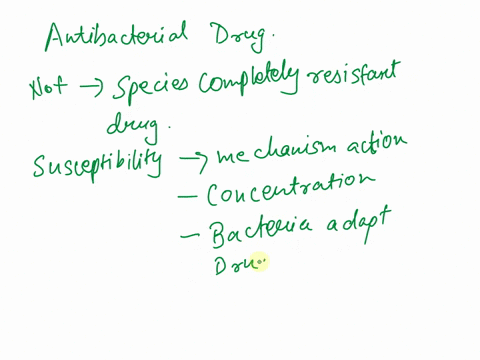 Antibacterial Drug.
Not → Species completely resistant
drug.
Susceptibility → mechanism action
- Concentration
- Bacteria adapt
Dru